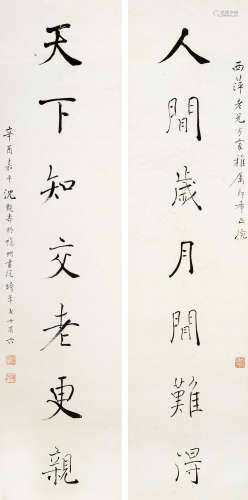 西萍老兄方家雅屬即希正腕
人間歲月閒難得
天下知交老更親
辛酉嘉平沈覲壽於福州書時年七十有六